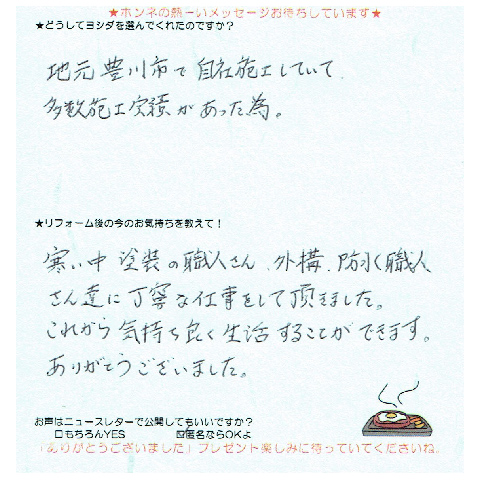 ★ホンネの熱ーいメッセージお待ちしています★
★どうしてヨシダを選んでくれたのですか？
地元豊川市で自社施工していて、
多数施工実績があった為。
★リフォーム後の今のお気持ちを教えて！
寒い中塗装の職人さん、外構、防水職人
さん達に丁寧な仕事をして頂きました。
これから気持ち良く生活することができます。
ありがとうございました。
お声はニュースレターで公開してもいいですか？
□もちろんYES ☑匿名ならOKよ
「ありがとうございました」プレゼント楽しみに待っていてくださいね。